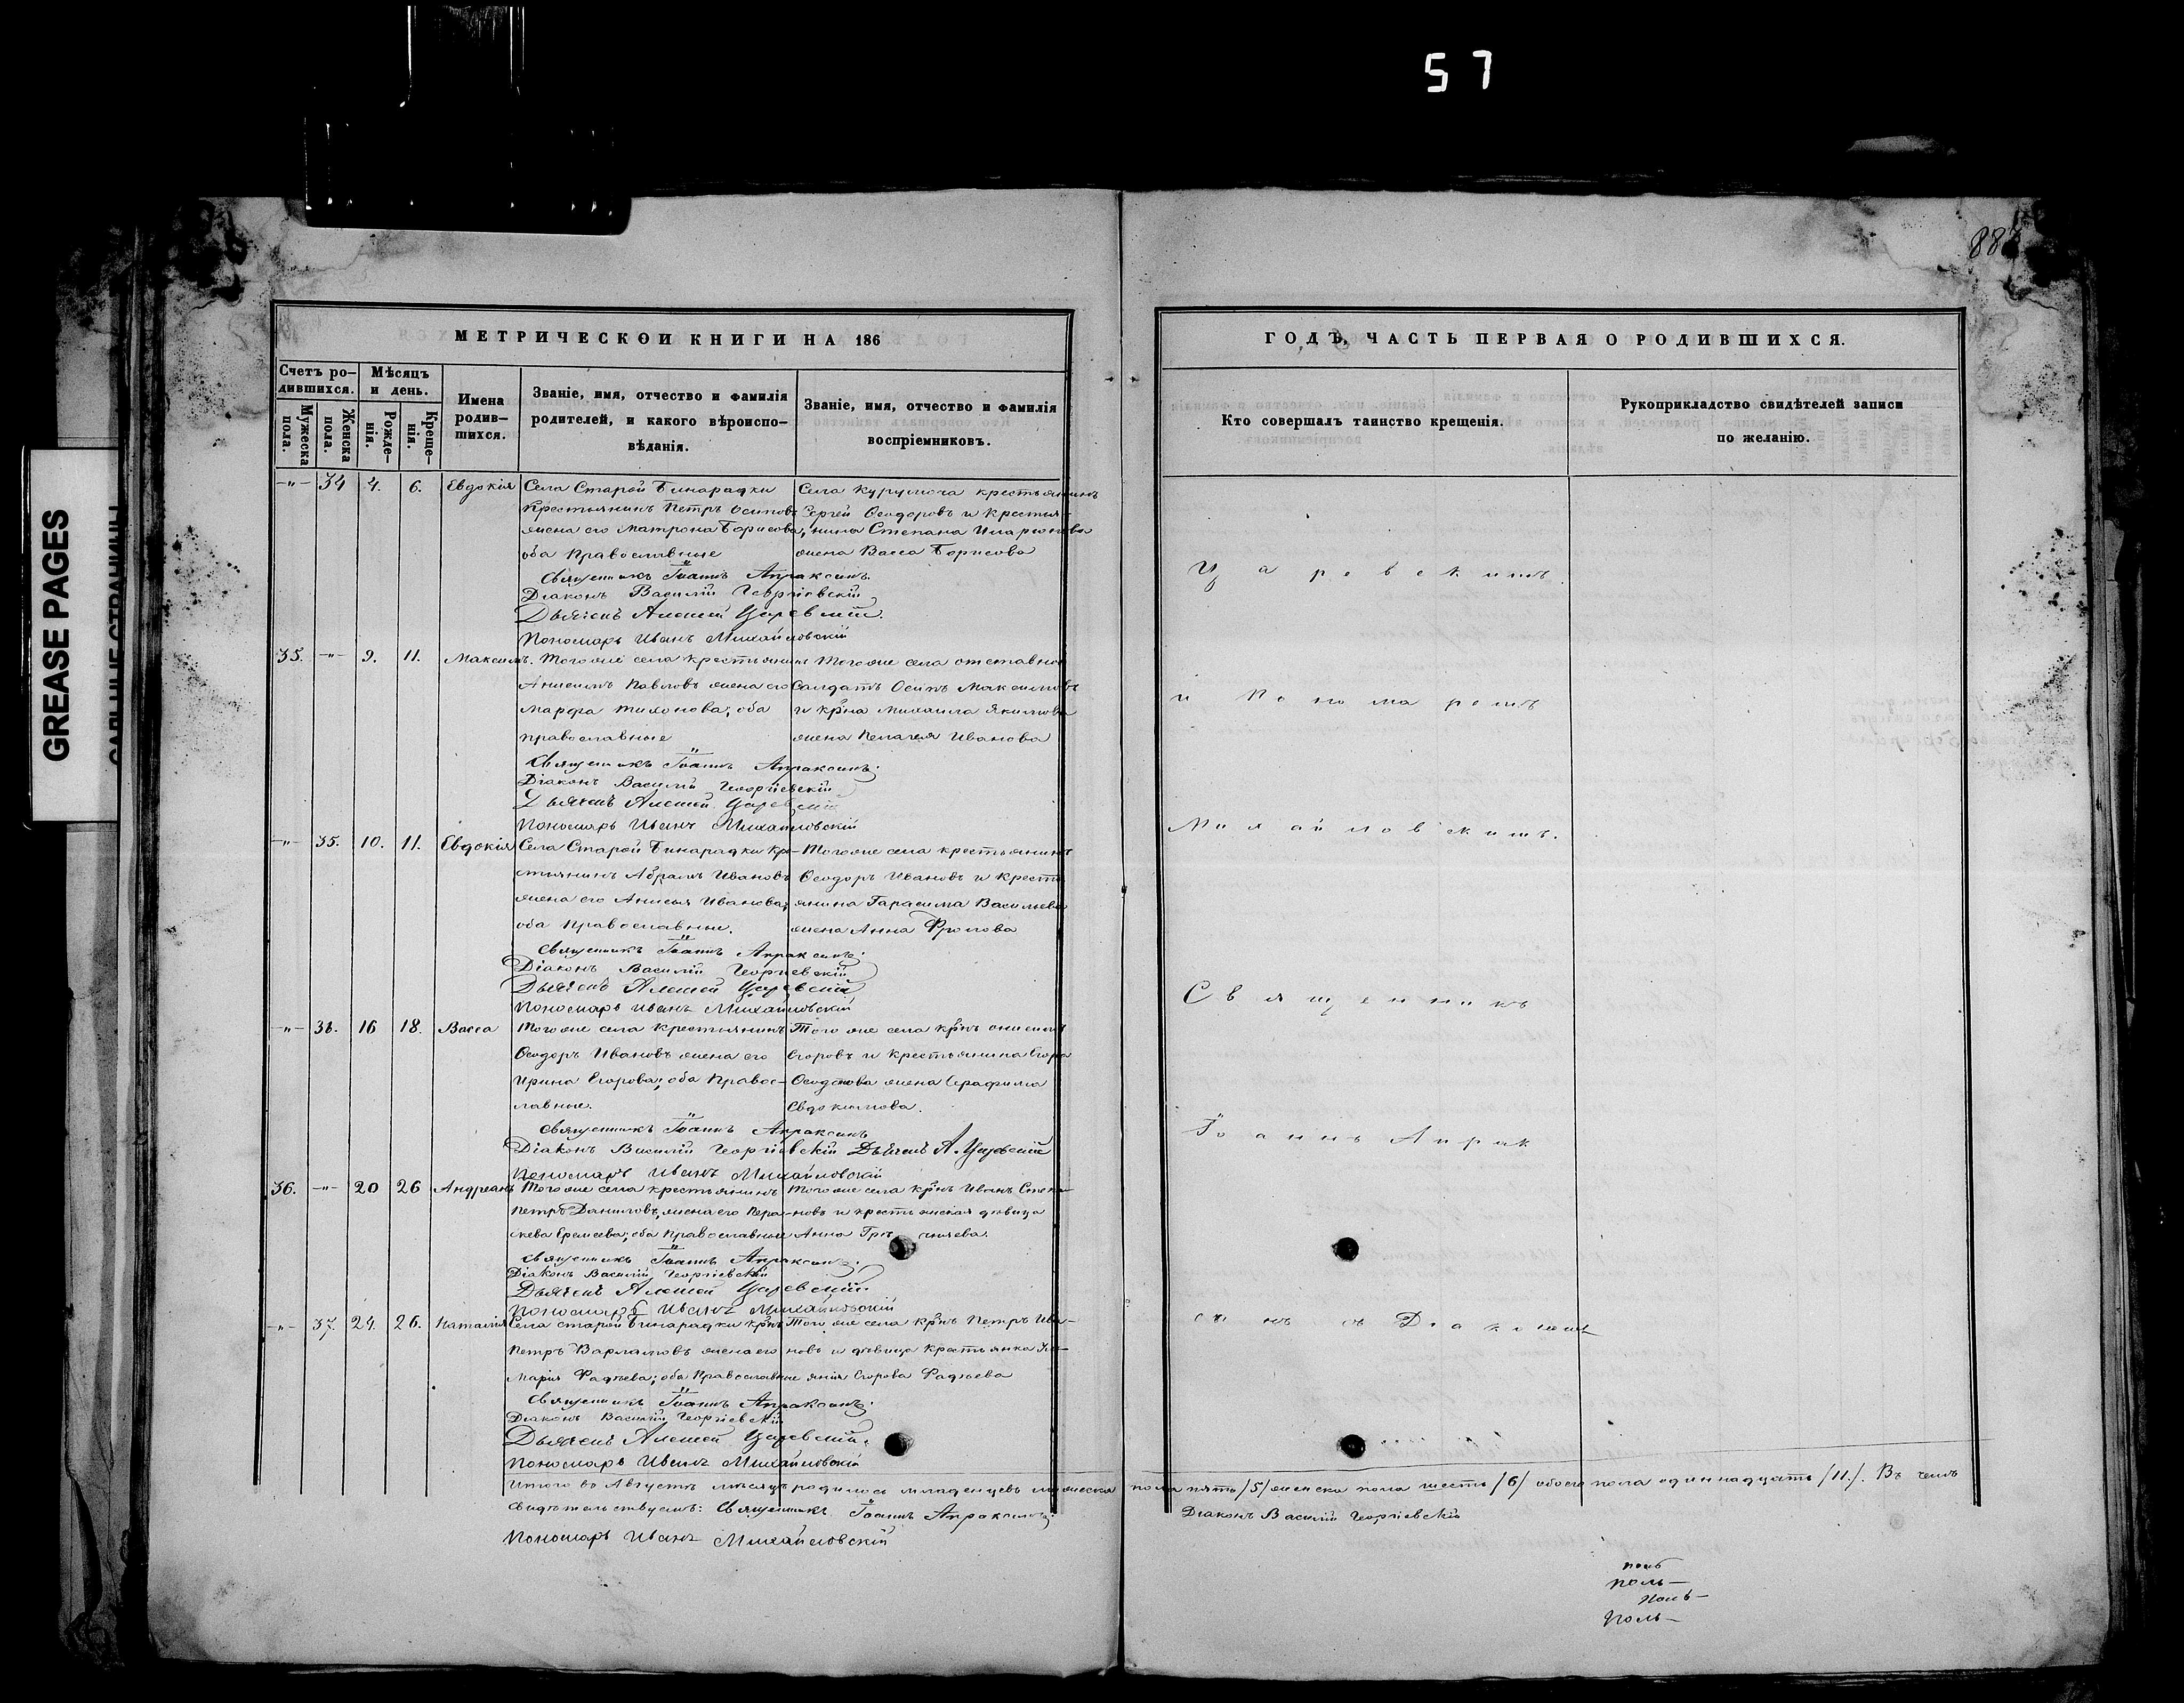 57
883
GREASE PAGES
МЕТРИЧЕСКОЙ КНИГИ НА 186
Счетъ ро-
дившихся.
Мужеска
пола.
Женска
пола.
Мѣсяцъ
и день.
Рожде-
нія.
Креще-
нія.
Имена
родив-
шихся.
Званіе, имя, отчество и фамилія
родителей, и какого вѣроиспо-
вѣданія.
Званіе, имя, отчество и фамилія
воспріемниковъ.
—"— 34 4. 6. Евдокія
Села Старой Бинарадки
Крестьянинъ Петръ Осиповъ
жена его Матрона Борисова,
оба Православные
Села Курумоча крестьянинъ
Сергей Ѳеодоровъ и крестья-
нина Степана Иларионова
жена Васса Борисова
Священникъ Іоаннъ Апраксинъ.
Діаконъ Василій Георгіевскій
Дьячекъ Алексей Царевскій.
Пономарь Иванъ Михайловскій
35. —"— 9. 11. Максимъ.
Тогоже села крестьянинъ
Анисимъ Павловъ жена его
Марфа Тихонова; оба
православные
Тогоже села отставной
Салдатъ Осипъ Максимовъ
и кр̃на Михаила Якимова
жена Пелагея Иванова
Священникъ Іоаннъ Апраксинъ.
Діаконъ Василій Георгіевскій
Дьячекъ Алексей Царевскій
Пономарь Иванъ Михайловскій
—"— 35. 10. 11. Евдокія
Села Старой Бинарадки кре-
стьянинъ Абрамъ Ивановъ
жена его Анисья Иванова;
оба Православные.
Тогоже села крестьянинъ
Ѳеодоръ Ивановъ и кресть
янина Гарасима Васильева
жена Анна Фролова
Священникъ Іоаннъ Апраксинъ.
Діаконъ Василій Георгіевскій
Дьячекъ Алексей Царевскій
Пономарь Иванъ Михайловскій
—"— 36. 16 18. Васса
Тогоже села Крестьянинъ
Ѳеодоръ Ивановъ жена его
Ирина Егорова; оба Правос-
лавные.
Того же села кр̃нъ Онисимъ
Егоровъ и крестьянина Егора
жена Серафима
Евдокимова.
Священникъ Іоаннъ Апраксинъ
Діаконъ Василій Георгіевскій Дьячекъ А. Царевскій
Пономарь Иванъ Михайловскій
36. —"— 20 26 Андреанъ
Тогоже села крестьянинъ
Петръ Даниловъ, жена его Пара-
скева Еремеева; оба Православные
Тогоже села кр̃нъ Иванъ Степа-
новъ и крестьянская дѣвица
Анна
Священникъ Іоаннъ Апраксинъ.
Діаконъ Василій Георгіевскій
Дьячекъ Алексей Царевскій.
Пономарь Иванъ Михайловскій
—"— 37. 24. 26. Наталія
Села старой Бинарадки кр̃нъ
Петръ Варламовъ жена его
Марія Фадѣева; оба Православные
Того же села кр̃нъ Петръ Ива-
новъ и дѣвица Крестьянка Уль-
янія Егорова Фадѣева
Священникъ Іоаннъ Апраксинъ.
Діаконъ Василій Георгіевскій
Дьячекъ Алексей Царевскій.
Пономарь Иванъ Михайловскій
Итого въ Августѣ мѣсяцѣ родилось младенцевъ мужеска пола пять /5/ женска пола шесть /6/ обоего пола одиннадцать /11./. Въ чемъ
свидѣтельствуемъ: Священникъ Іоаннъ Апраксинъ
Діаконъ Василій Георгіевскій
Пономарь Иванъ Михайловскій
ГОДЪ, ЧАСТЬ ПЕРВАЯ О РОДИВШИХСЯ.
Кто совершалъ таинство крещенія.
Рукоприкладство свидѣтелей записи
по желанію.
Царевскимъ
и Пономаремъ
Михайловскимъ.
Священникъ
Іоаннъ Апрак
синъ съ Діакономъ